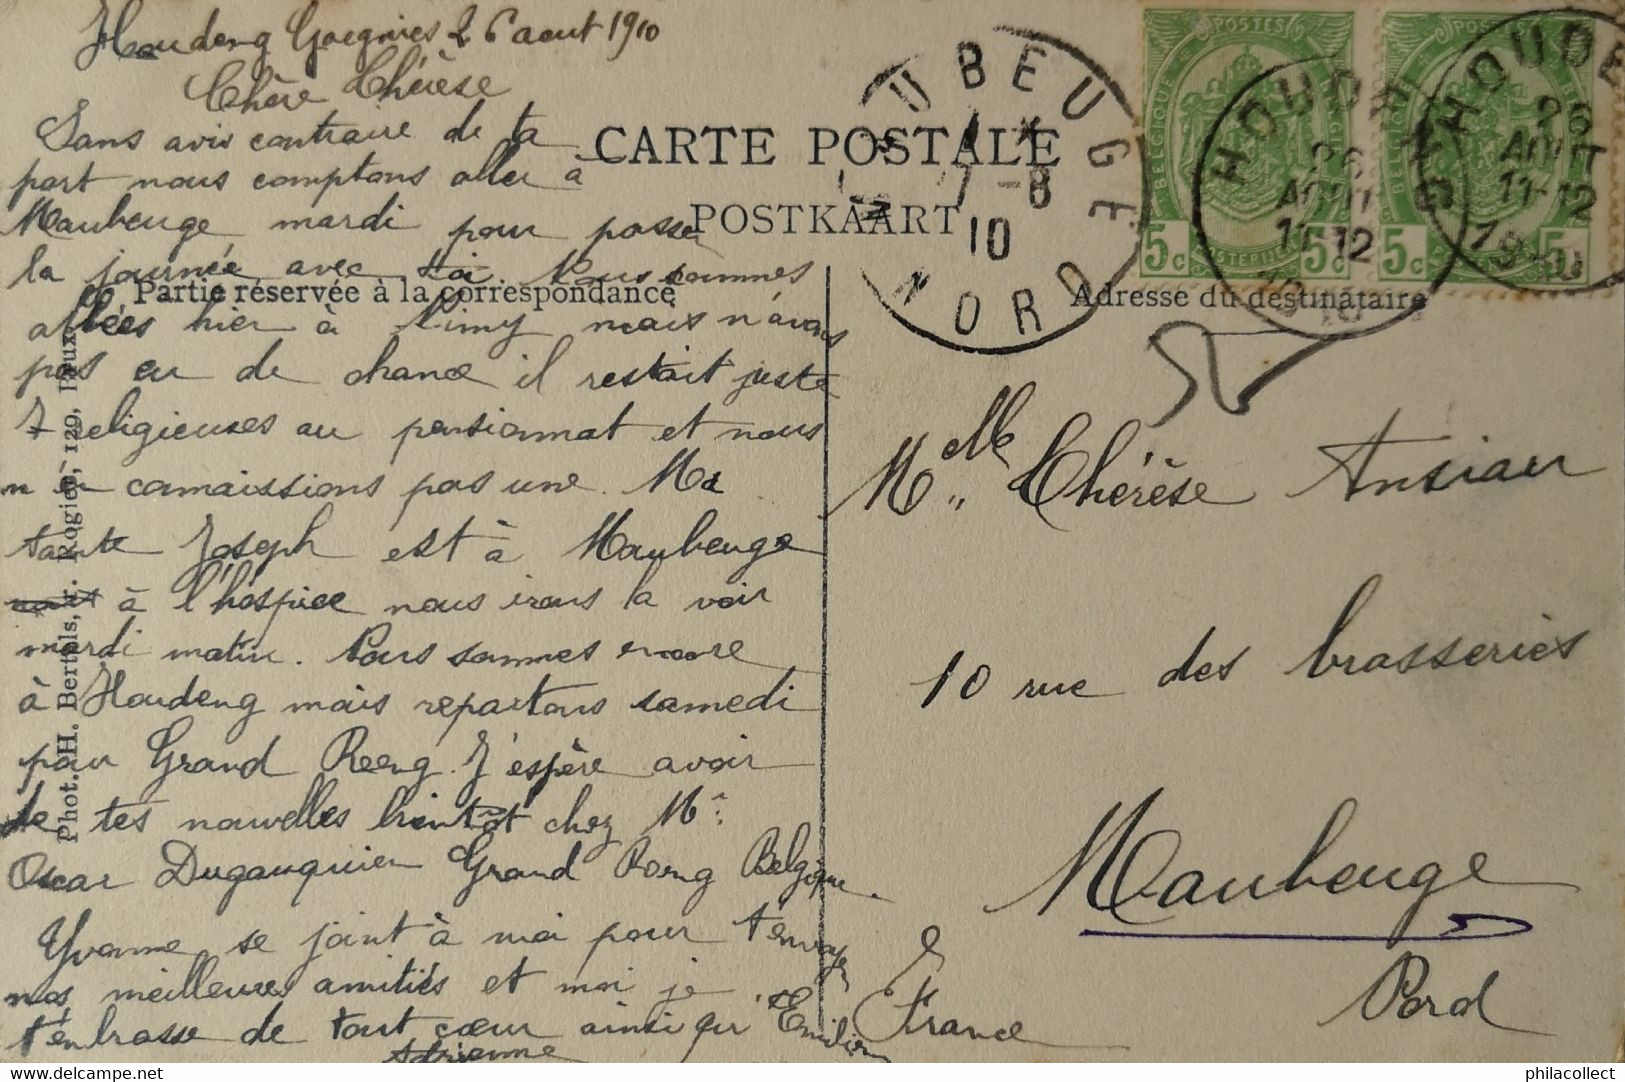 Houdeng Goegnies 26 aout 1910
Chère Thérèse
Sans avis contraire de ta
part nous comptons aller à
Maubeuge mardi pour passer
la journée avec toi. Nous sommes
allées hier à Nimy mais n'avons
pas eu de chance il restait juste
7 religieuses au pensionnat et nous
n'en connaissions pas une. Ma
tante Joseph est à Maubeuge
à l'hospice nous irons la voir
mardi matin. Nous sommes encore
à Houdeng mais repartons samedi
pour Grand Reng. J'espère avoir
de tes nouvelles bientôt chez Mr
Oscar Dugauquier Grand Reng Belgique.
Yvonne se joint à moi pour t'envoyer
nos meilleures amitiés et moi je
t'embrasse de tout cœur ainsi qu'Emilienne
Adrienne
CARTE POSTALE
POSTKAART
Partie réservée à la correspondance
Adresse du destinataire
Phot. H. Bertels, r. Rogier, 129, Brux.
MAUBEUGE
7-8
10
NORD
POSTES
BELGIQUE
5c 5c
HOUDENG
26
AOUT
11-12
1910
POSTES
BELGIQUE
5c 5c
HOUDENG
26
AOUT
11-12
1910
Melle Thérèse Ansiau
10 rue des brasseries
Maubeuge
Nord
France
www.delcampe.net
philacollect